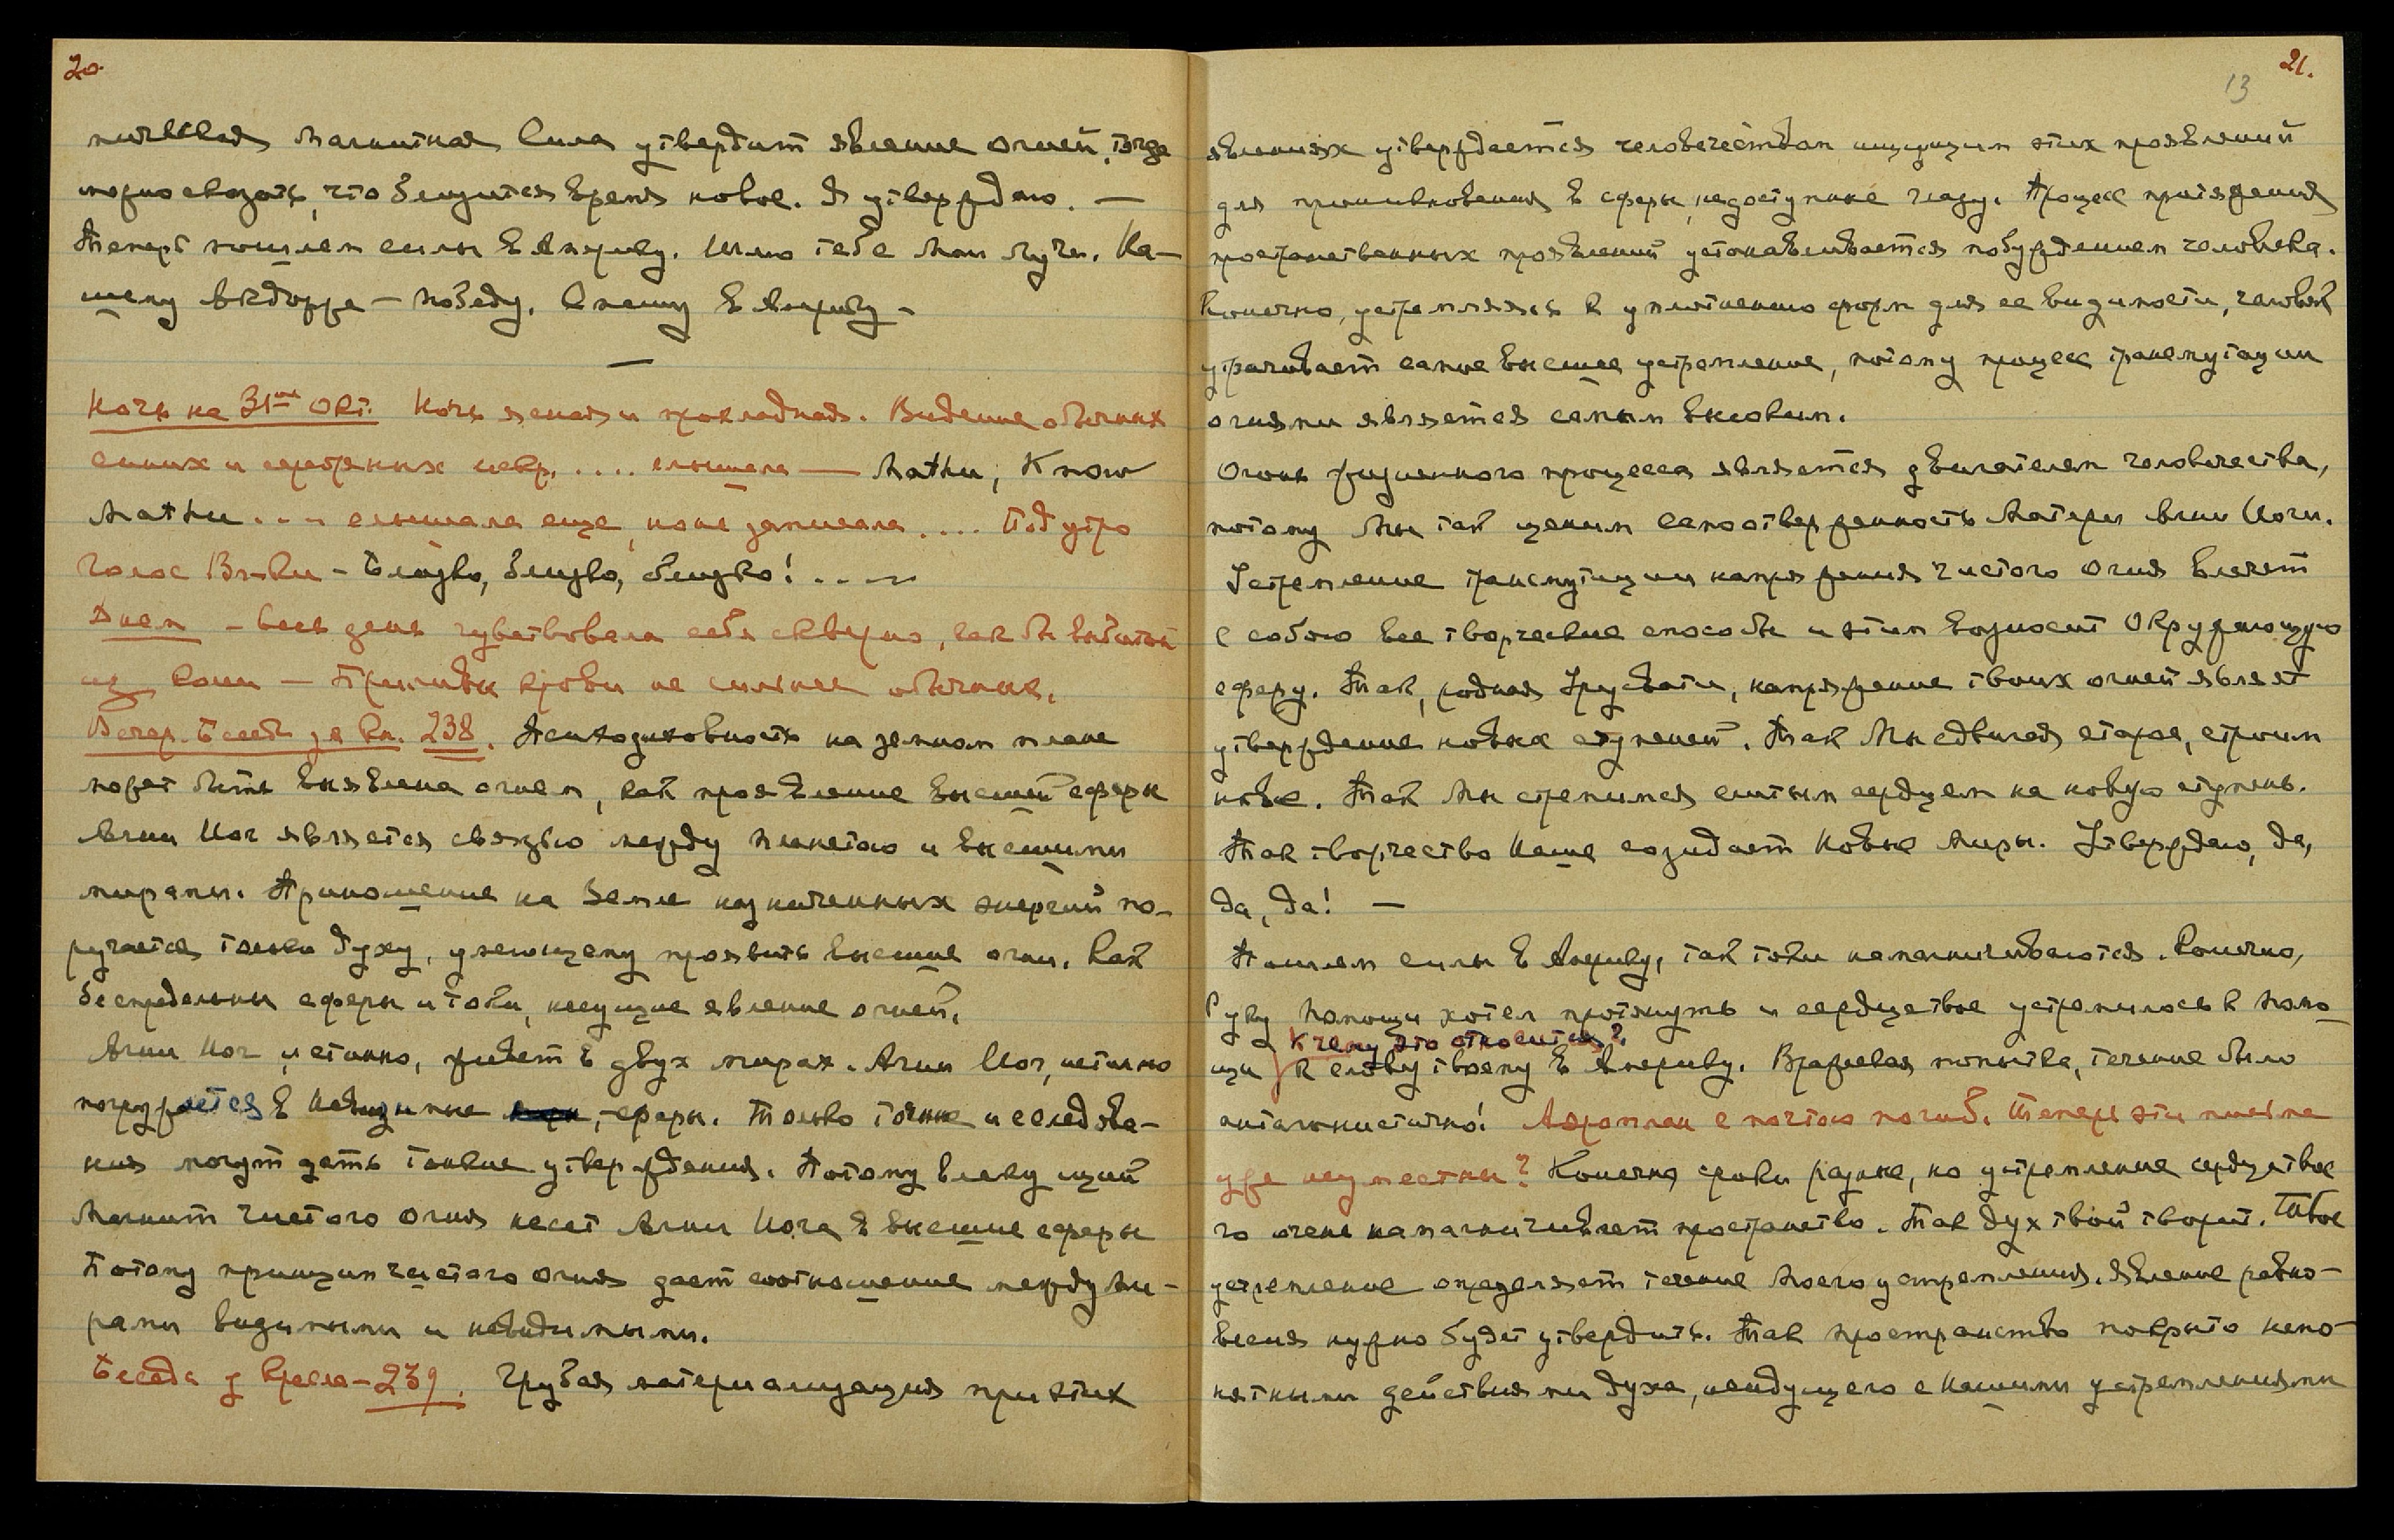 20.
магнитная Сила утвердит явление огней, тогда
можно сказать, что близится время новое. Я утверждаю. —
Теперь пошлем силы в Америку. Шлю тебе Мои Лучи. На-
шему — победу. Спешу в Америку —
—
Ночь на 31ое Окт. Ночь ясная и прохладная. Видение обычных
синих и серебряных искр. .... слышала — Mathu, Know
Mathu .... слышала еще, но не записала .... Под утро
Голос Вл-ки – Близко, близко, близко! ....
Днем – Весь день чувствовала себя скверно, как бы выбитой
из колеи — Приливы крови не сильнее обычных.
Вечер. Беседа за Кн. 238. Психодуховность на земном плане
может быть выявлена огнем, как проявление высшей сферы
Агни Йог является связью между планетою и высшими
мирами. Приношение на Земле назначенных энергий по-
ручается только духу, умеющему проявить высшие огни. Как
беспредельны сферы и токи, несущие явление огней.
Агни Йог, истинно, живет в двух мирах. Агни Йог, истинно
погружается в Невидимые сферы. Только тонкие исследова-
ния могут дать тонкие утверждения. Потому влекущий
Магнит чистого огня несет Агни Йога в высшие сферы
Потому принцип чистого огня дает соотношение между Ми-
рами видимыми и невидимыми.
Беседа у Кресла – 239. Грубая материализация при этих
21.
13
явлениях утверждается человечеством ищущим этих проявлений
для проникновения в сферы, недоступные глазу. Процесс притяжения
пространственных проявлений устанавливается побуждением человека.
Конечно, устремляясь к уплотнению форм для ее видимости, человек
утрачивает самое высшее устремление, потому процесс трансмутации
огнями является самым высоким.
Огонь жизненного процесса является двигателем человечества,
потому Мы так ценим самоотверженность Матери Агни Йоги.
Устремление трансмутации напряжения чистого Огня влечет
с собою все творческие способы и этим возносит Окружающую
сферу. Так, родная Урусвати, напряжение твоих огней являет
утверждение новых ступеней. Так Мы сдвигая старое, строим
новые. Так Мы стремимся слитым сердцем на новую ступень.
Так творчество Наше созидает Новые Миры. Утверждаю, да,
да, да! —
Пошлем силы в Америку, так токи намагничиваются. Конечно,
Руку Помощи хотел протянуть и сердце твое устремилось к Помо-
К чему это относится?
щи к слову твоему в Америку. Вражеская попытка, течение было
антагонистично! Аэроплан с почтою погиб. Теперь эти письма
уже неуместны? Конечно, сроки разные, но устремление сердца твое-
го очень намагничивает пространство. Так дух твой творит. Твое
устремление определяет течение Моего устремления. Явление равно-
весия нужно будет утвердить. Так пространство покрыто непо-
нятными действиями духа, неидущего с Нашими устремлениями